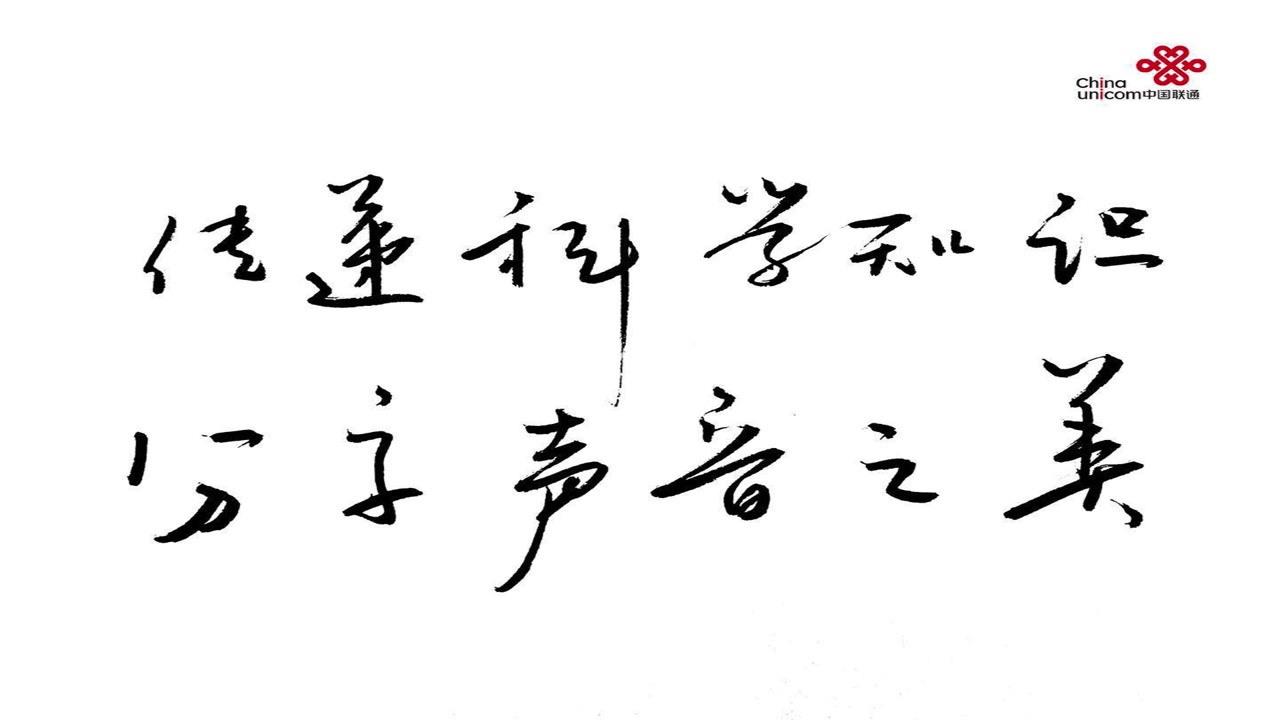 China
unicom中国联通
传递科学知识
分享声音之美